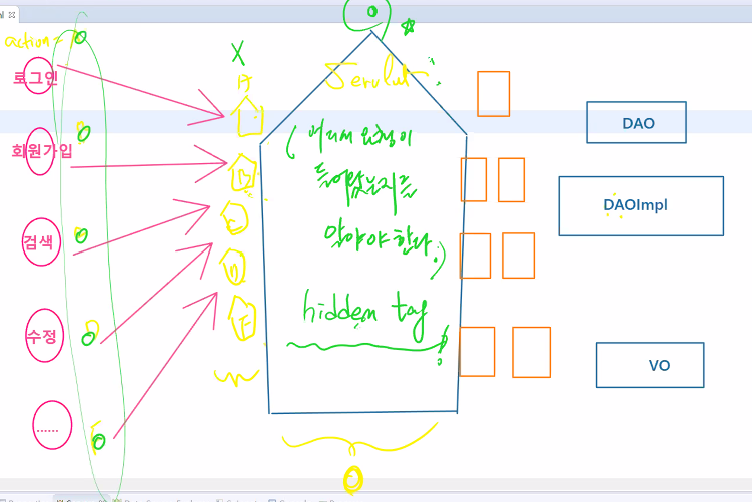 action =
로그인
회원가입
검색
수정
......
X
A
B
C
D
E
Servlet
(어디서 요청이
들어왔는지를
알아야 한다)
hidden tag
DAO
DAOImpl
VO